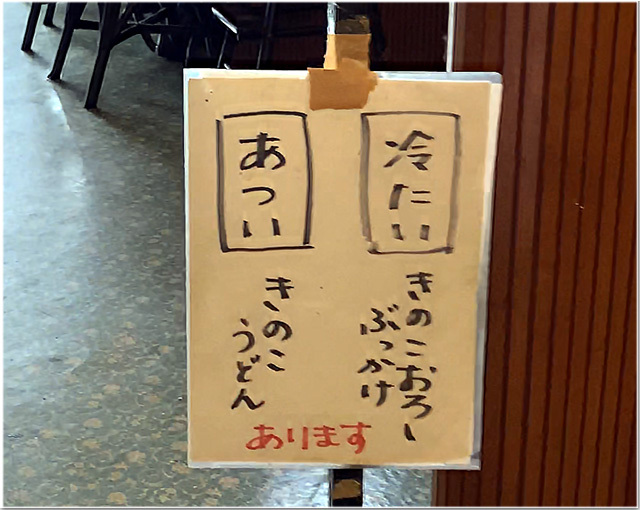 冷たい
きのこおろし
ぶっかけ
あつい
きのこ
うどん
あります